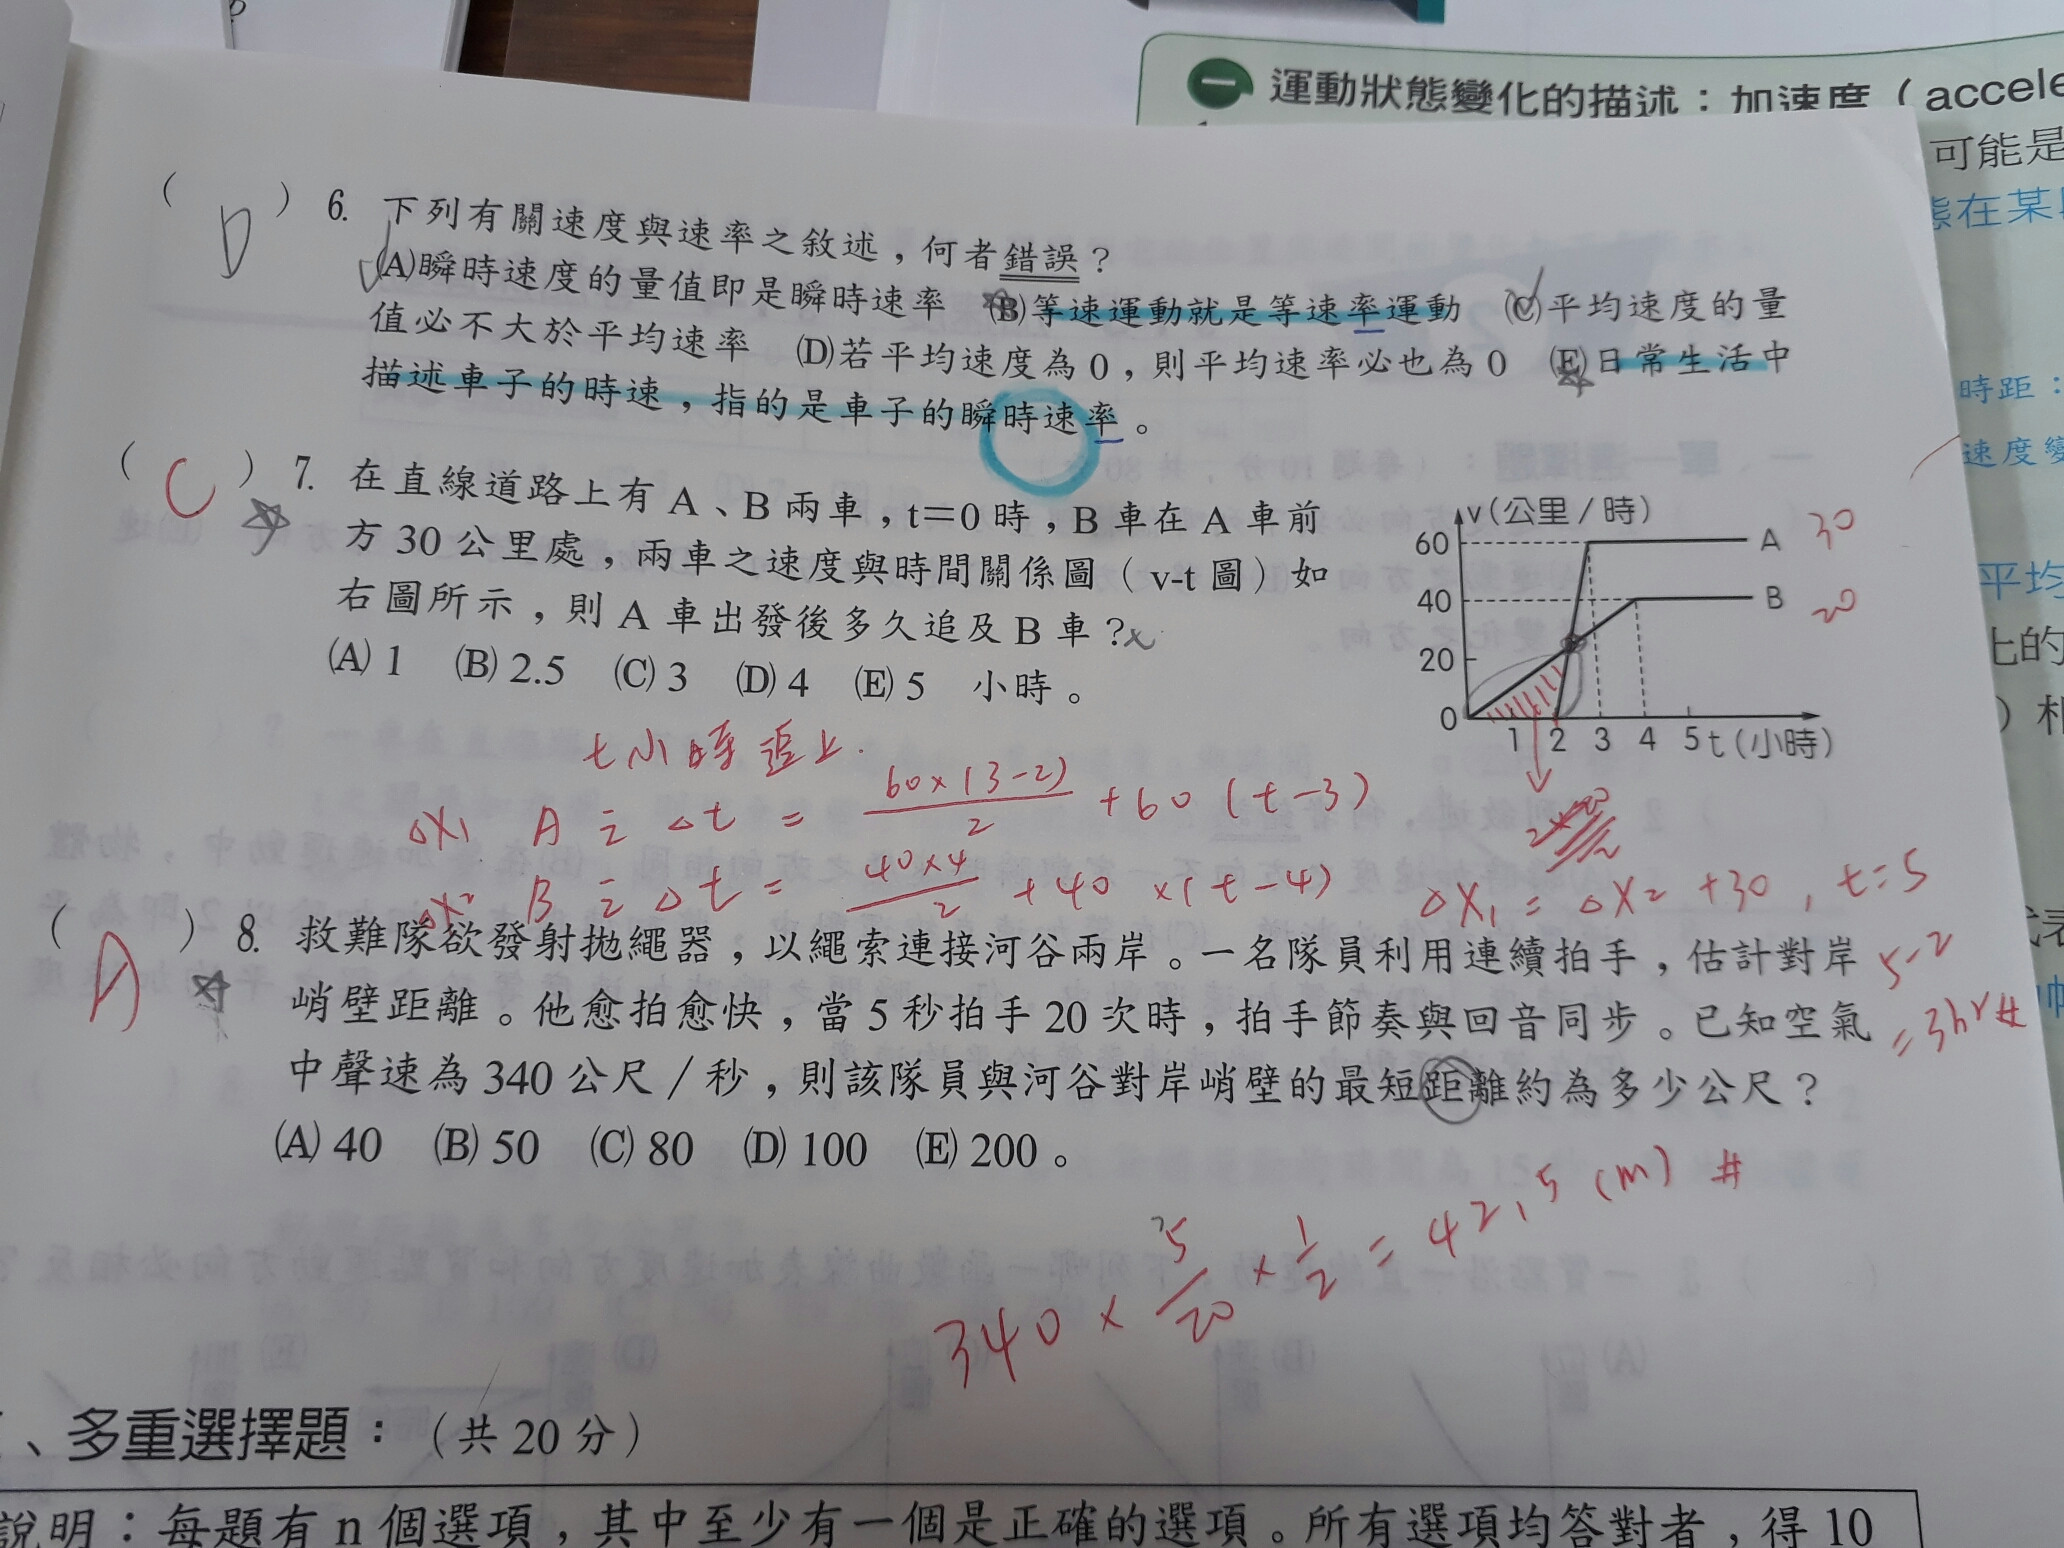 一 運動狀態變化的描述：加速度（accele
可能是
態在某
時距：
速度變
平均
比的
( D ) 6. 下列有關速度與速率之敘述，何者錯誤？
(A)瞬時速度的量值即是瞬時速率 (B)等速運動就是等速率運動 (C)平均速度的量
值必不大於平均速率 (D)若平均速度為0，則平均速率必也為0 (E)日常生活中
描述車子的時速，指的是車子的瞬時速率。
( C ) 7. 在直線道路上有 A、B 兩車，t=0 時，B 車在 A 車前
方 30 公里處，兩車之速度與時間關係圖（v-t 圖）如
右圖所示，則 A 車出發後多久追及 B 車？
(A) 1 (B) 2.5 (C) 3 (D) 4 (E) 5 小時。
v(公里/時)
60 A 30
40 B 20
20
0 1 2 3 4 5 t(小時)
t小時追上.
△X1 A 之 △t = 60×(3-2)/2 +60(t-3)
△X2 B 之 △t = 40×4/2 +40×(t-4)
△X1 = △X2 +30, t=5
5-2
=3hr#
( A ) 8. 救難隊欲發射拋繩器，以繩索連接河谷兩岸。一名隊員利用連續拍手，估計對岸
峭壁距離。他愈拍愈快，當 5 秒拍手 20 次時，拍手節奏與回音同步。已知空氣
中聲速為 340 公尺／秒，則該隊員與河谷對岸峭壁的最短距離約為多少公尺？
(A) 40 (B) 50 (C) 80 (D) 100 (E) 200。
340 × 5/20 × 1/2 = 42.5 (m) #
、多重選擇題：（共 20 分）
說明：每題有 n 個選項，其中至少有一個是正確的選項。所有選項均答對者，得 10